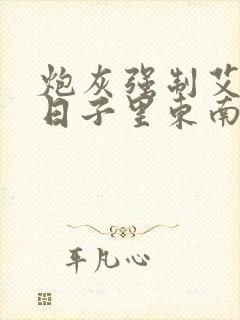 炮灰强制艾
日子里东南
平凡心